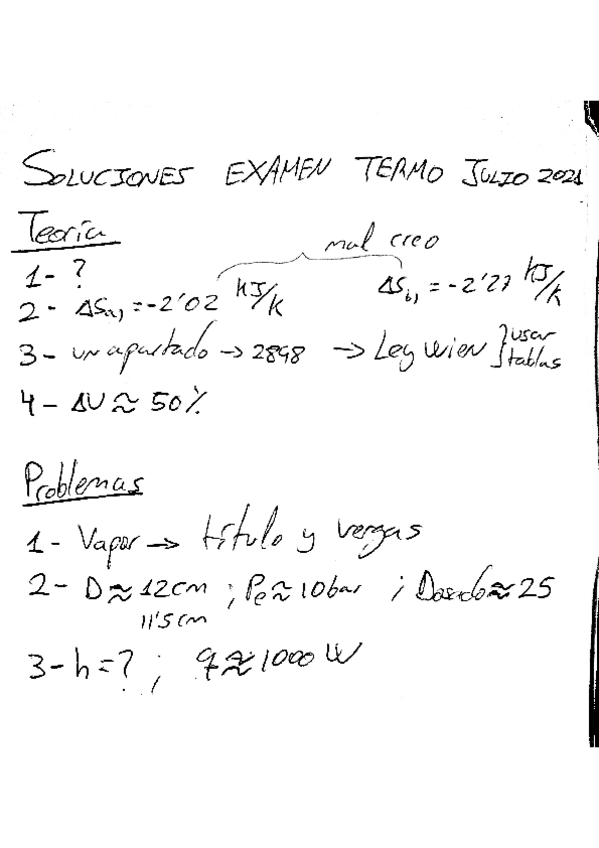 SOLUCIONES EXAMEN TERMO JULIO 2021
Teoría
mal creo
1- ?
2- ΔSa) = -2'02 KJ/K ΔSb) = -2'27 KJ/K
3- un apartado → 2898 → Ley Wien } usar tablas
4- ΔU ≈ 50%
Problemas
1- Vapor → título y vergas
2- D ≈ 12cm ; Pe ≈ 10bar ; Dosado ≈ 25
11'5cm
3- h = ? ; q ≈ 1000 W